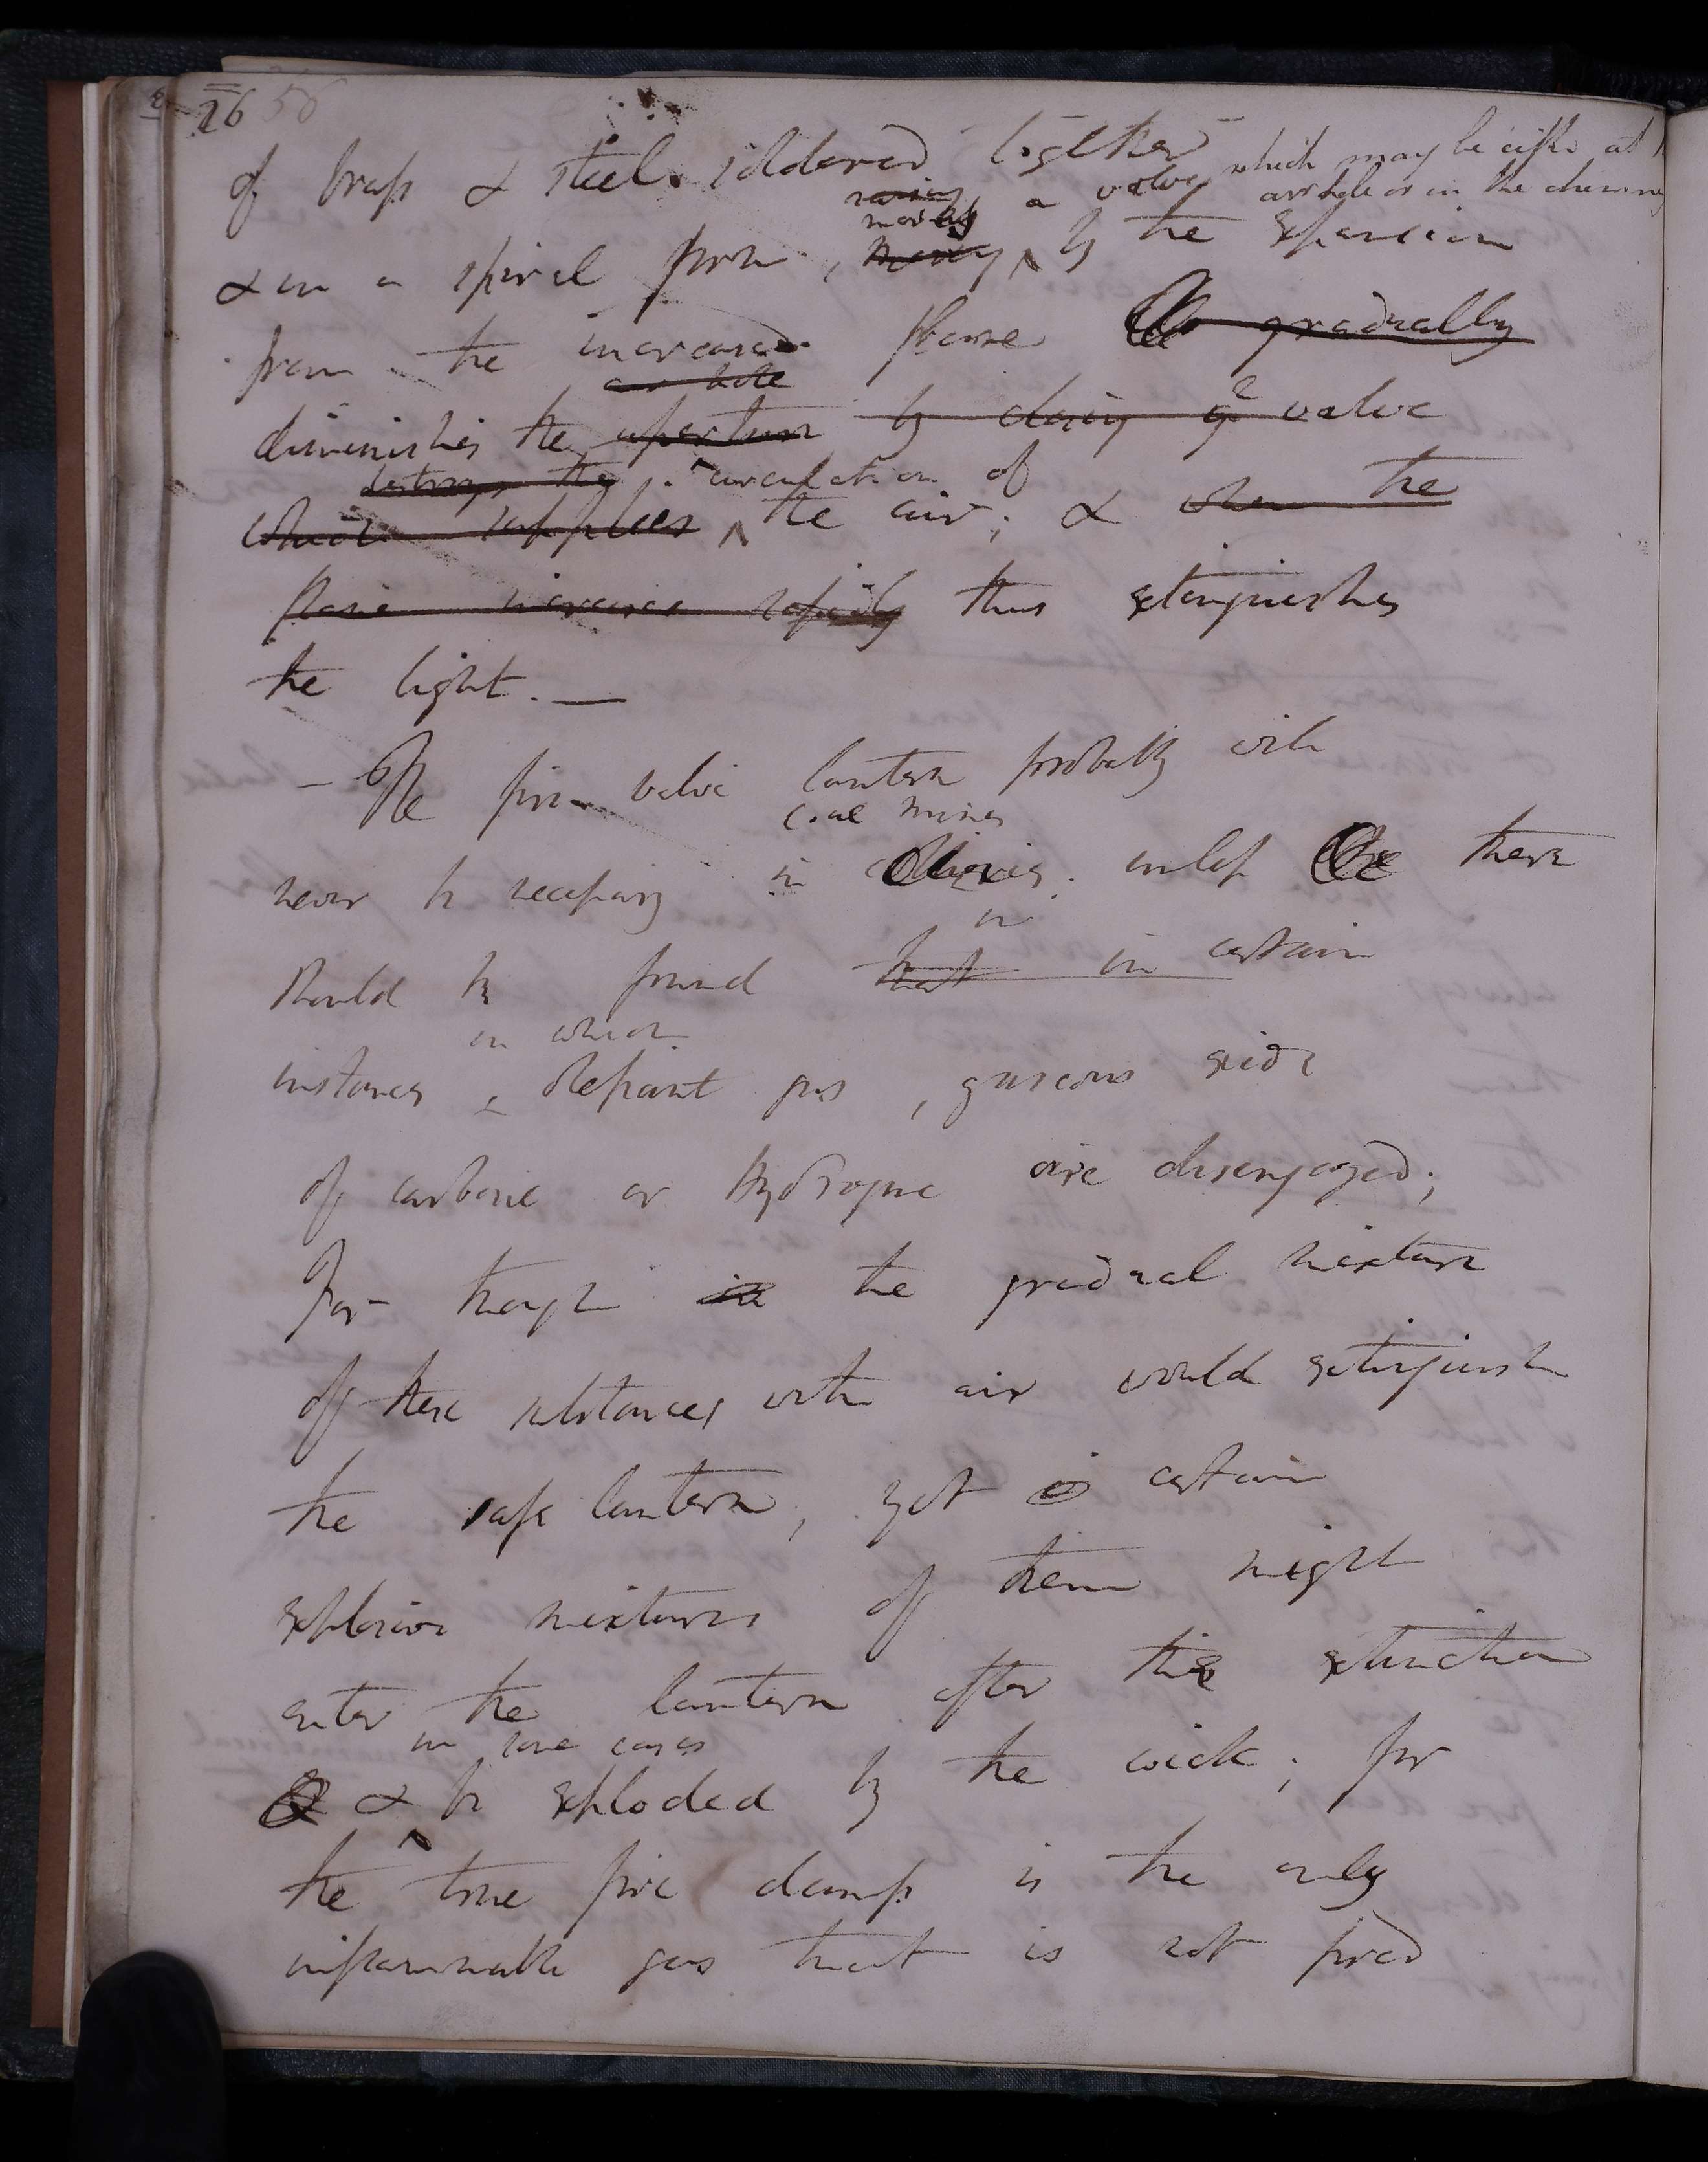 26 58
of brass & steel soldered together
which may be either at
raising a valve airhole or in the chimney
moving
& in a spiral form, moving by the expansion
from the increased flame the gradually
air hole
diminishes the aperture by closing ye valve
destroys the circulation of
which supplies the air; & when the
flame increases rapidly thus extinguishes
the light. —
— The fire valve lantern probably will
coal mines
never be necessary in collieries unless the there
in
should be found that in certain
in which
instances, olefiant gas, gaseous oxide
of carbone or Hydrogene are disengaged;
For though in the gradual mixture
of these substances with air would extinguish
the safe lantern, yet certain
explosive mixtures of them might
enter the lantern after the extinction
in some cases
& be exploded by the wick; for
the true fire damp is the only
inflammable gas that is not fired